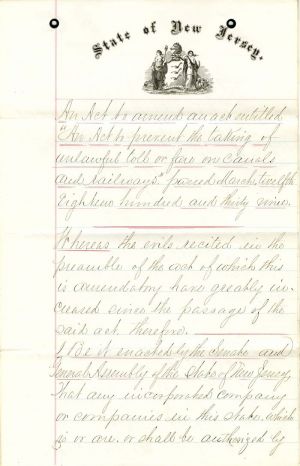 State of New Jersey.
An Act to amend an act entitled
"An Act to prevent the taking of
unlawful toll or fare on Canals
and railways" passed March twelfth
Eighteen hundred and thirty nine.
Whereas the evils recited in the
preamble of the act of which this
is amendatory have greatly in-
creased since the passage of the
said act therefore.
1 Be it enacted by the Senate and
General Assembly of the State of New Jersey,
That any incorporated company
or companies in this state which
is or are or shall be authorized by